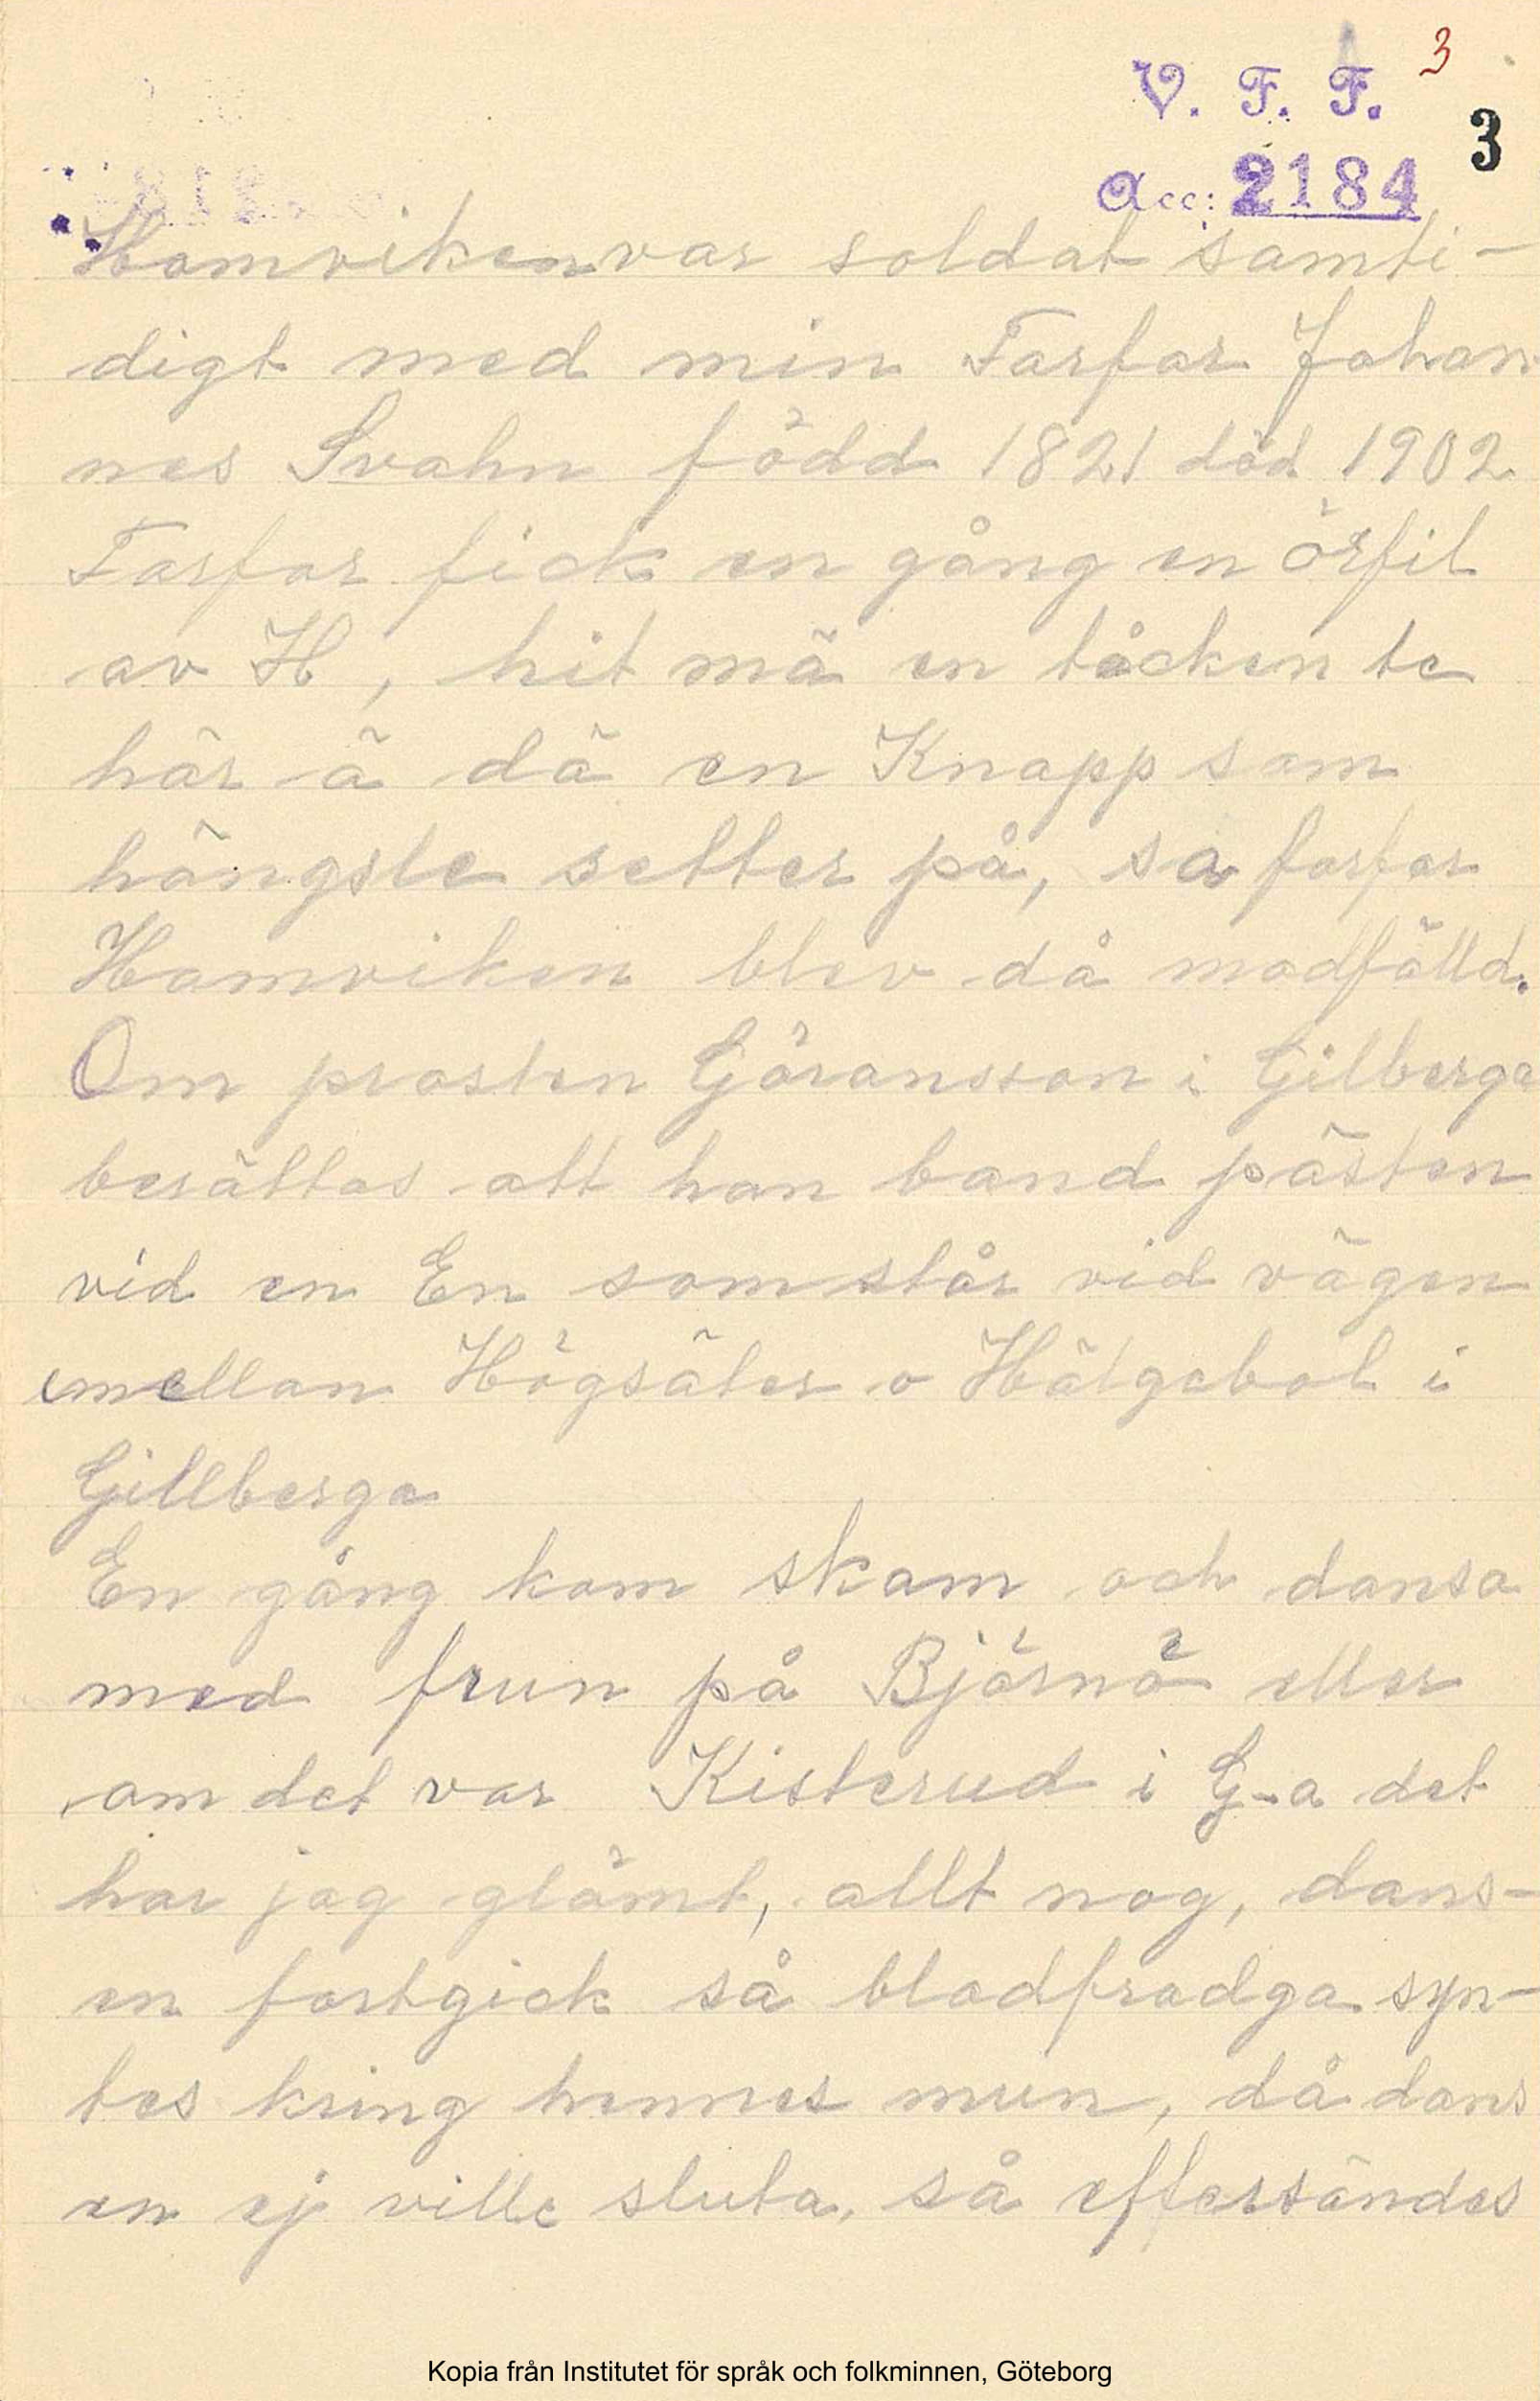 3
V. F. F.
3
Acc: 2184
Hamviken var soldat samti-
digt med min Farfar Johan
nes Svahn född 1821 död 1902
Farfar fick en gång en örfil
av H, hit mä en tåcken te
här ä dä en Knapp som
hängsle setter på, sa farfar
Hamviken blev då modfälld.
Om prosten Göransson i Gilberga
berättas att han band pästen
vid en En som står vid vägen
emellan Högsäter o Hälgebol i
Gillberga
En gång kom skam och dansa
med frun på Björnö eller
om det var Kisterud i G-a det
har jag glömt, allt nog, dans-
en fortgick så blodfradga syn-
tes kring hennes mun, då dans
en ej ville sluta, så eftersändes
Kopia från Institutet för språk och folkminnen, Göteborg